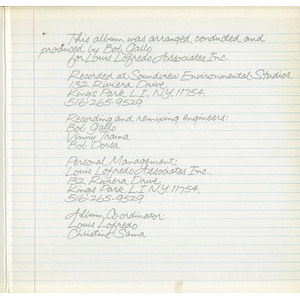 This album was arranged, conducted and
produced by Bob Gallo
for Louis Lofredo Associates Inc.
Recorded at Soundview Environmental Studios
132 Riviera Drive
Kings Park L.I., N.Y. 11754
516-265-9529
Recording and remixing engineers:
Bob Gallo
Vinny Traina
Bob Dorsa
Personal Management:
Louis Lofredo Associates Inc.
132 Riviera Drive
Kings Park L.I. N.Y. 11754
516-265-9529
Album Co-ordinator:
Louis Lofredo
Christine Sama